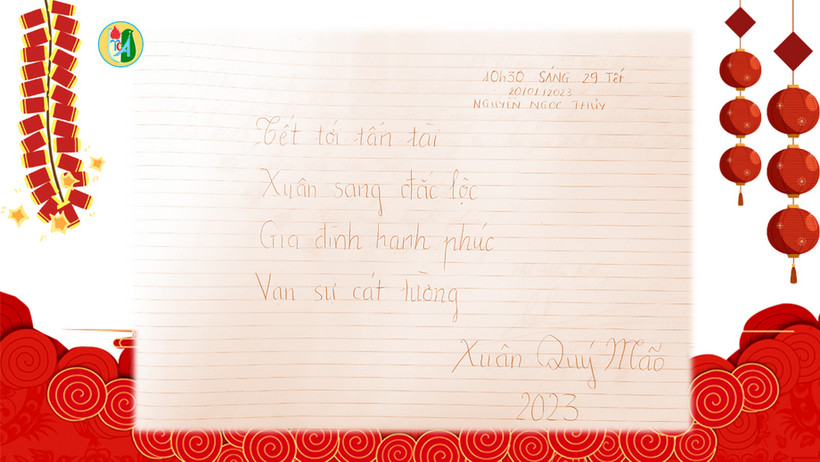 TCA
10h30 SÁNG 29 Tết
20/01/2023
NGUYỄN NGỌC THỦY
Tết tới tấn tài
Xuân sang đắc lộc
Gia đình hạnh phúc
Vạn sự cát tường
Xuân Quý Mão
2023